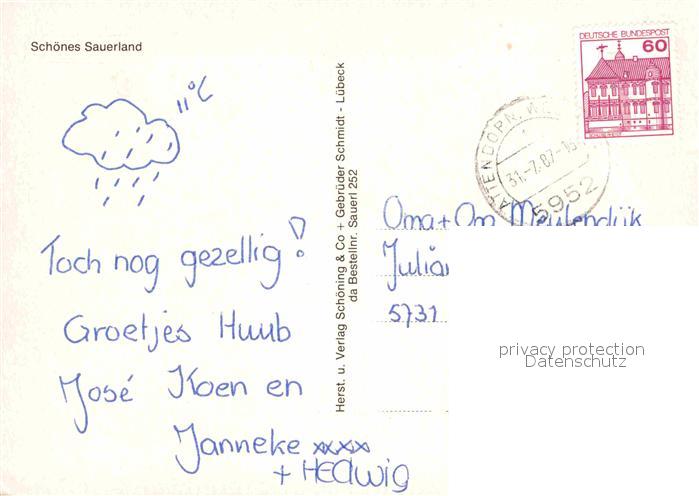 Schönes Sauerland
11°C
Toch nog gezellig!
Groetjes Huub
José Koen en
Janneke xxxx
+ HEdwig
Herst. u. Verlag Schöning & Co + Gebrüder Schmidt - Lübeck
da Bestellnr. Sauerl 252
DEUTSCHE BUNDESPOST
60
ATTENDORN
31.-7.87-
5952
Oma + Opa Meulendijk
5731
privacy protection
Datenschutz